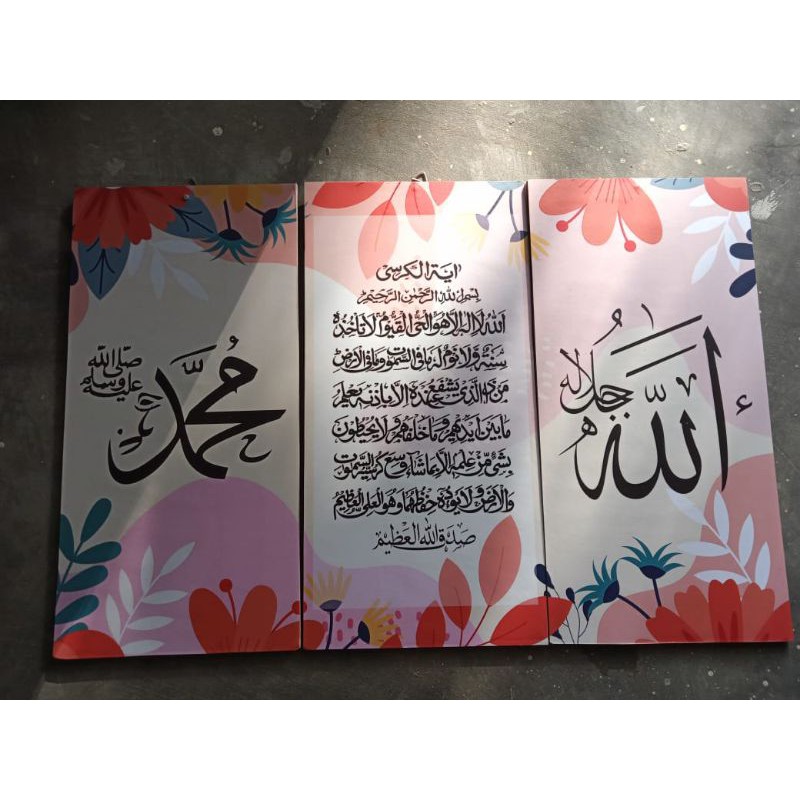 الله
جل جلاله
اية الكرسى
بسم الله الرحمن الرحيم
الله لا اله الا هو الحي القيوم لا تأخذه
سنة ولا نوم له ما فى السموت وما فى الارض
من ذا الذى يشفع عنده الا باذنه يعلم
ما بين ايديهم وما خلفهم ولا يحيطون
بشئ من علمه الا بما شاء وسع كرسيه السموت
والارض ولا يوده حفظهما وهو العلى العظيم
صدق الله العظيم
محمد
صلى الله
عليه وسلم